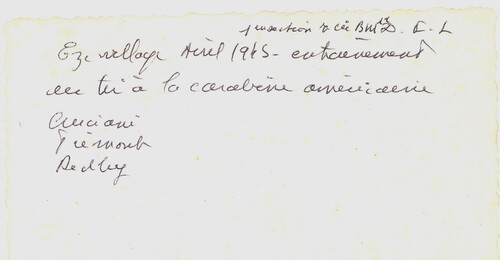 section
Eze village Avril 1945 - entraînement
au tir à la carabine américaine
Cruciani
Piémont
Dedley